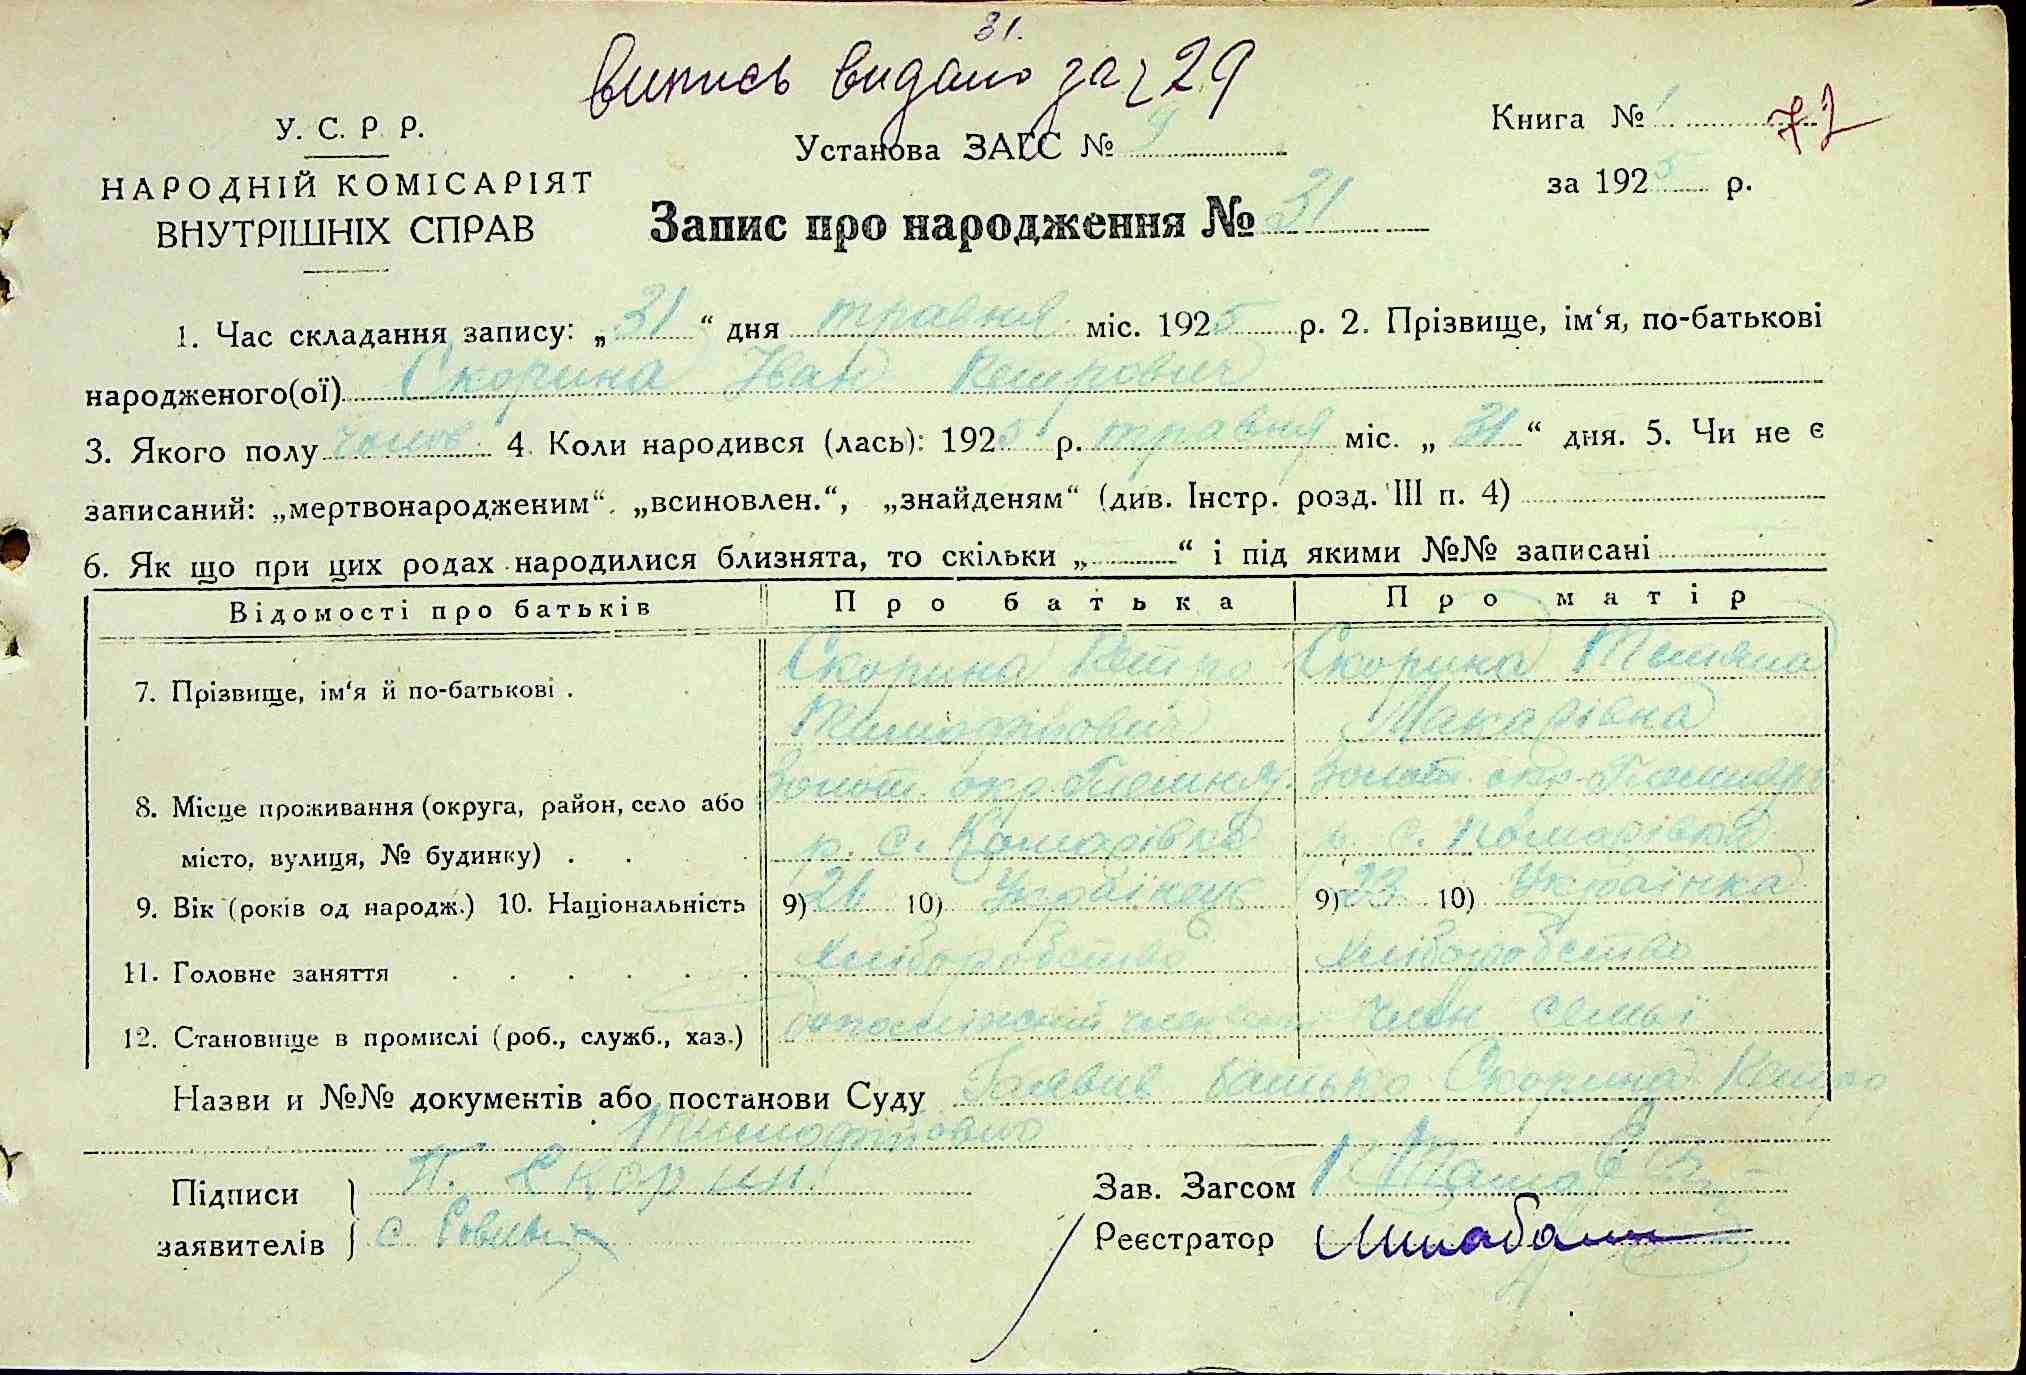 31.
випись видано за 29
У. С. Р. Р.
НАРОДНІЙ КОМІСАРІЯТ
ВНУТРІШНІХ СПРАВ
Установа ЗАГС № 9
Запис про народження № 31
Книга № 1 72
за 1925 р.
1. Час складання запису: „31“ дня травня міс. 1925 р. 2. Прізвище, ім‘я, по-батькові
народженого(ої) Скорина Іван Петрович
3. Якого полу чолов. 4. Коли народився (лась): 1925 р. травня міс. „31“ дня. 5. Чи не є
записаний: „мертвонародженим“, „всиновлен.“, „знайденям“ (див. Інстр. розд. ІІІ п. 4)
6. Як що при цих родах народилися близнята, то скільки „ “ і під якими №№ записані
Відомості про батьків Про батька Про матір
7. Прізвище, ім‘я й по-батькові . Скорина Петро Скорина Тетяна
Тимофійович Макарівна
8. Місце проживання (округа, район, село або Золот. окр. Золот. окр.
місто, вулиця, № будинку) . . . р. с. Комарівка р. с. Комарівка
9. Вік (років од народж.) 10. Національність 9) 10) Українець 9) 23 10) Українка
11. Головне заняття . . . . . . хліборобство хліборобство
12. Становище в промислі (роб., служб., хаз.) член член семьї
Назви и №№ документів або постанови Суду Заявив батько Скорина Петро
Тимофійович
Підписи П. Скорин.
заявителів с.
Зав. Загсом
Реєстратор